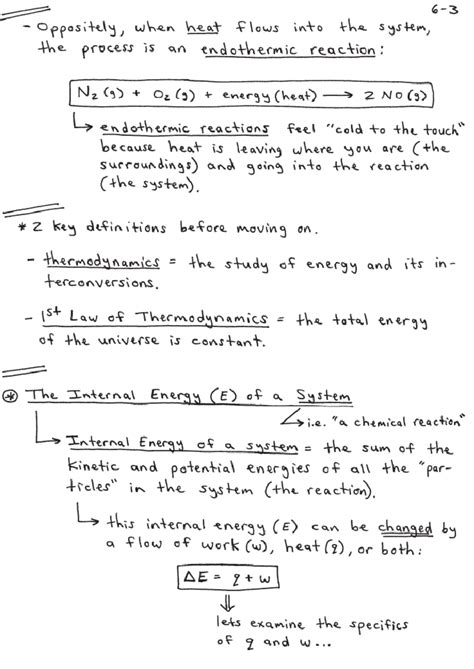 6-3
- Oppositely, when heat flows into the system,
the process is an endothermic reaction:
N₂(g) + O₂(g) + energy(heat) ⟶ 2 NO(g)
↳ endothermic reactions feel "cold to the touch"
because heat is leaving where you are (the
surroundings) and going into the reaction
(the system).
* 2 key definitions before moving on.
- thermodynamics = the study of energy and its in-
terconversions.
- 1st Law of Thermodynamics = the total energy
of the universe is constant.
⊛ The Internal Energy (E) of a System
↳ i.e. "a chemical reaction"
↳ Internal Energy of a system = the sum of the
kinetic and potential energies of all the "par-
ticles" in the system (the reaction).
↳ this internal energy (E) can be changed by
a flow of work (w), heat (q), or both:
ΔE = q + w
⇓
lets examine the specifics
of q and w...